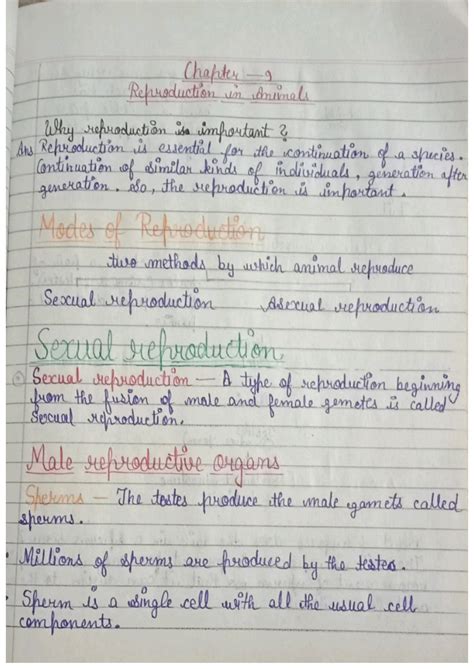 Chapter - 9
Reproduction in Animals
Why reproduction is important ?
Ans Reproduction is essential for the continuation of a species.
Continuation of similar kinds of individuals, generation after
generation. So, the reproduction is important.
Modes of Reproduction
two methods by which animal reproduce
Sexual reproduction Asexual reproduction
Sexual reproduction
Sexual reproduction — A type of reproduction beginning
from the fusion of male and female gemetes is called
Sexual reproduction.
Male reproductive organs
Sperms — The testes produce the male gamets called
sperms.
• Millions of sperms are produced by the testes.
• Sperm is a single cell with all the usual cell
components.